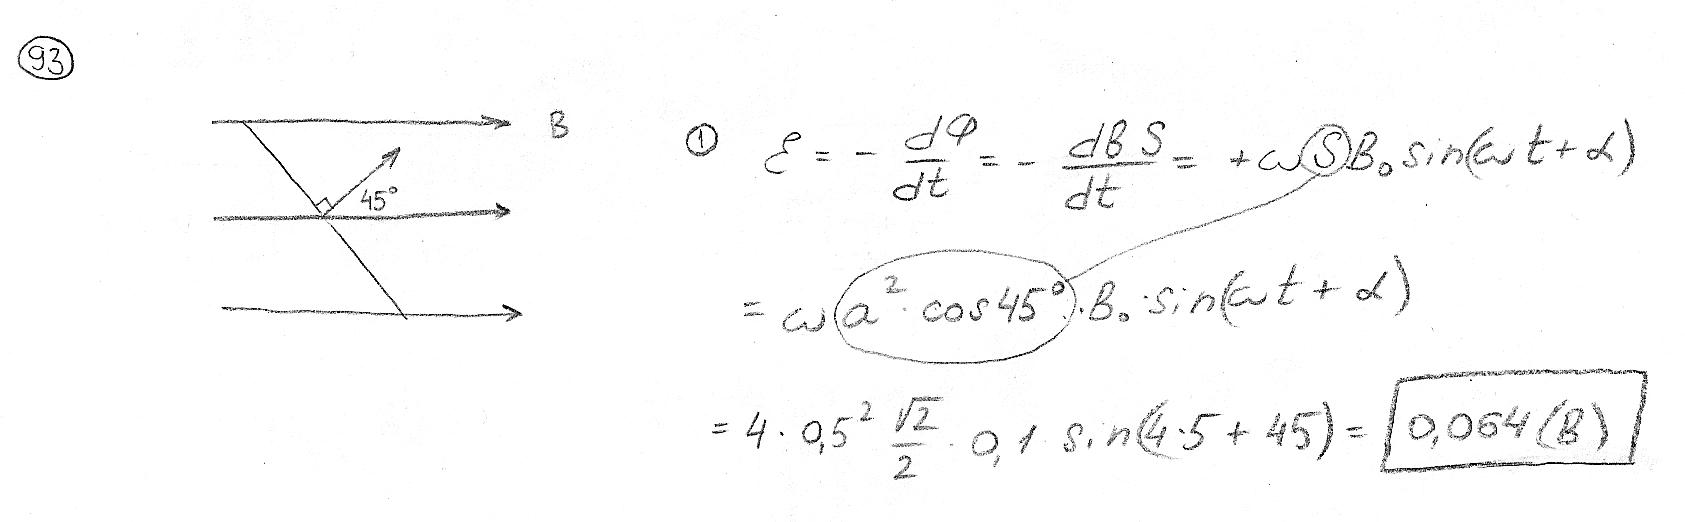 93
B
45°
① ℰ = - dФ/dt = - dB S/dt = + ω S B₀ sin(ωt + α)
= ω a² · cos 45° · B₀ · sin(ωt + α)
= 4 · 0,5² √2/2 · 0,1 · sin(4·5 + 45) = 0,064 (В)